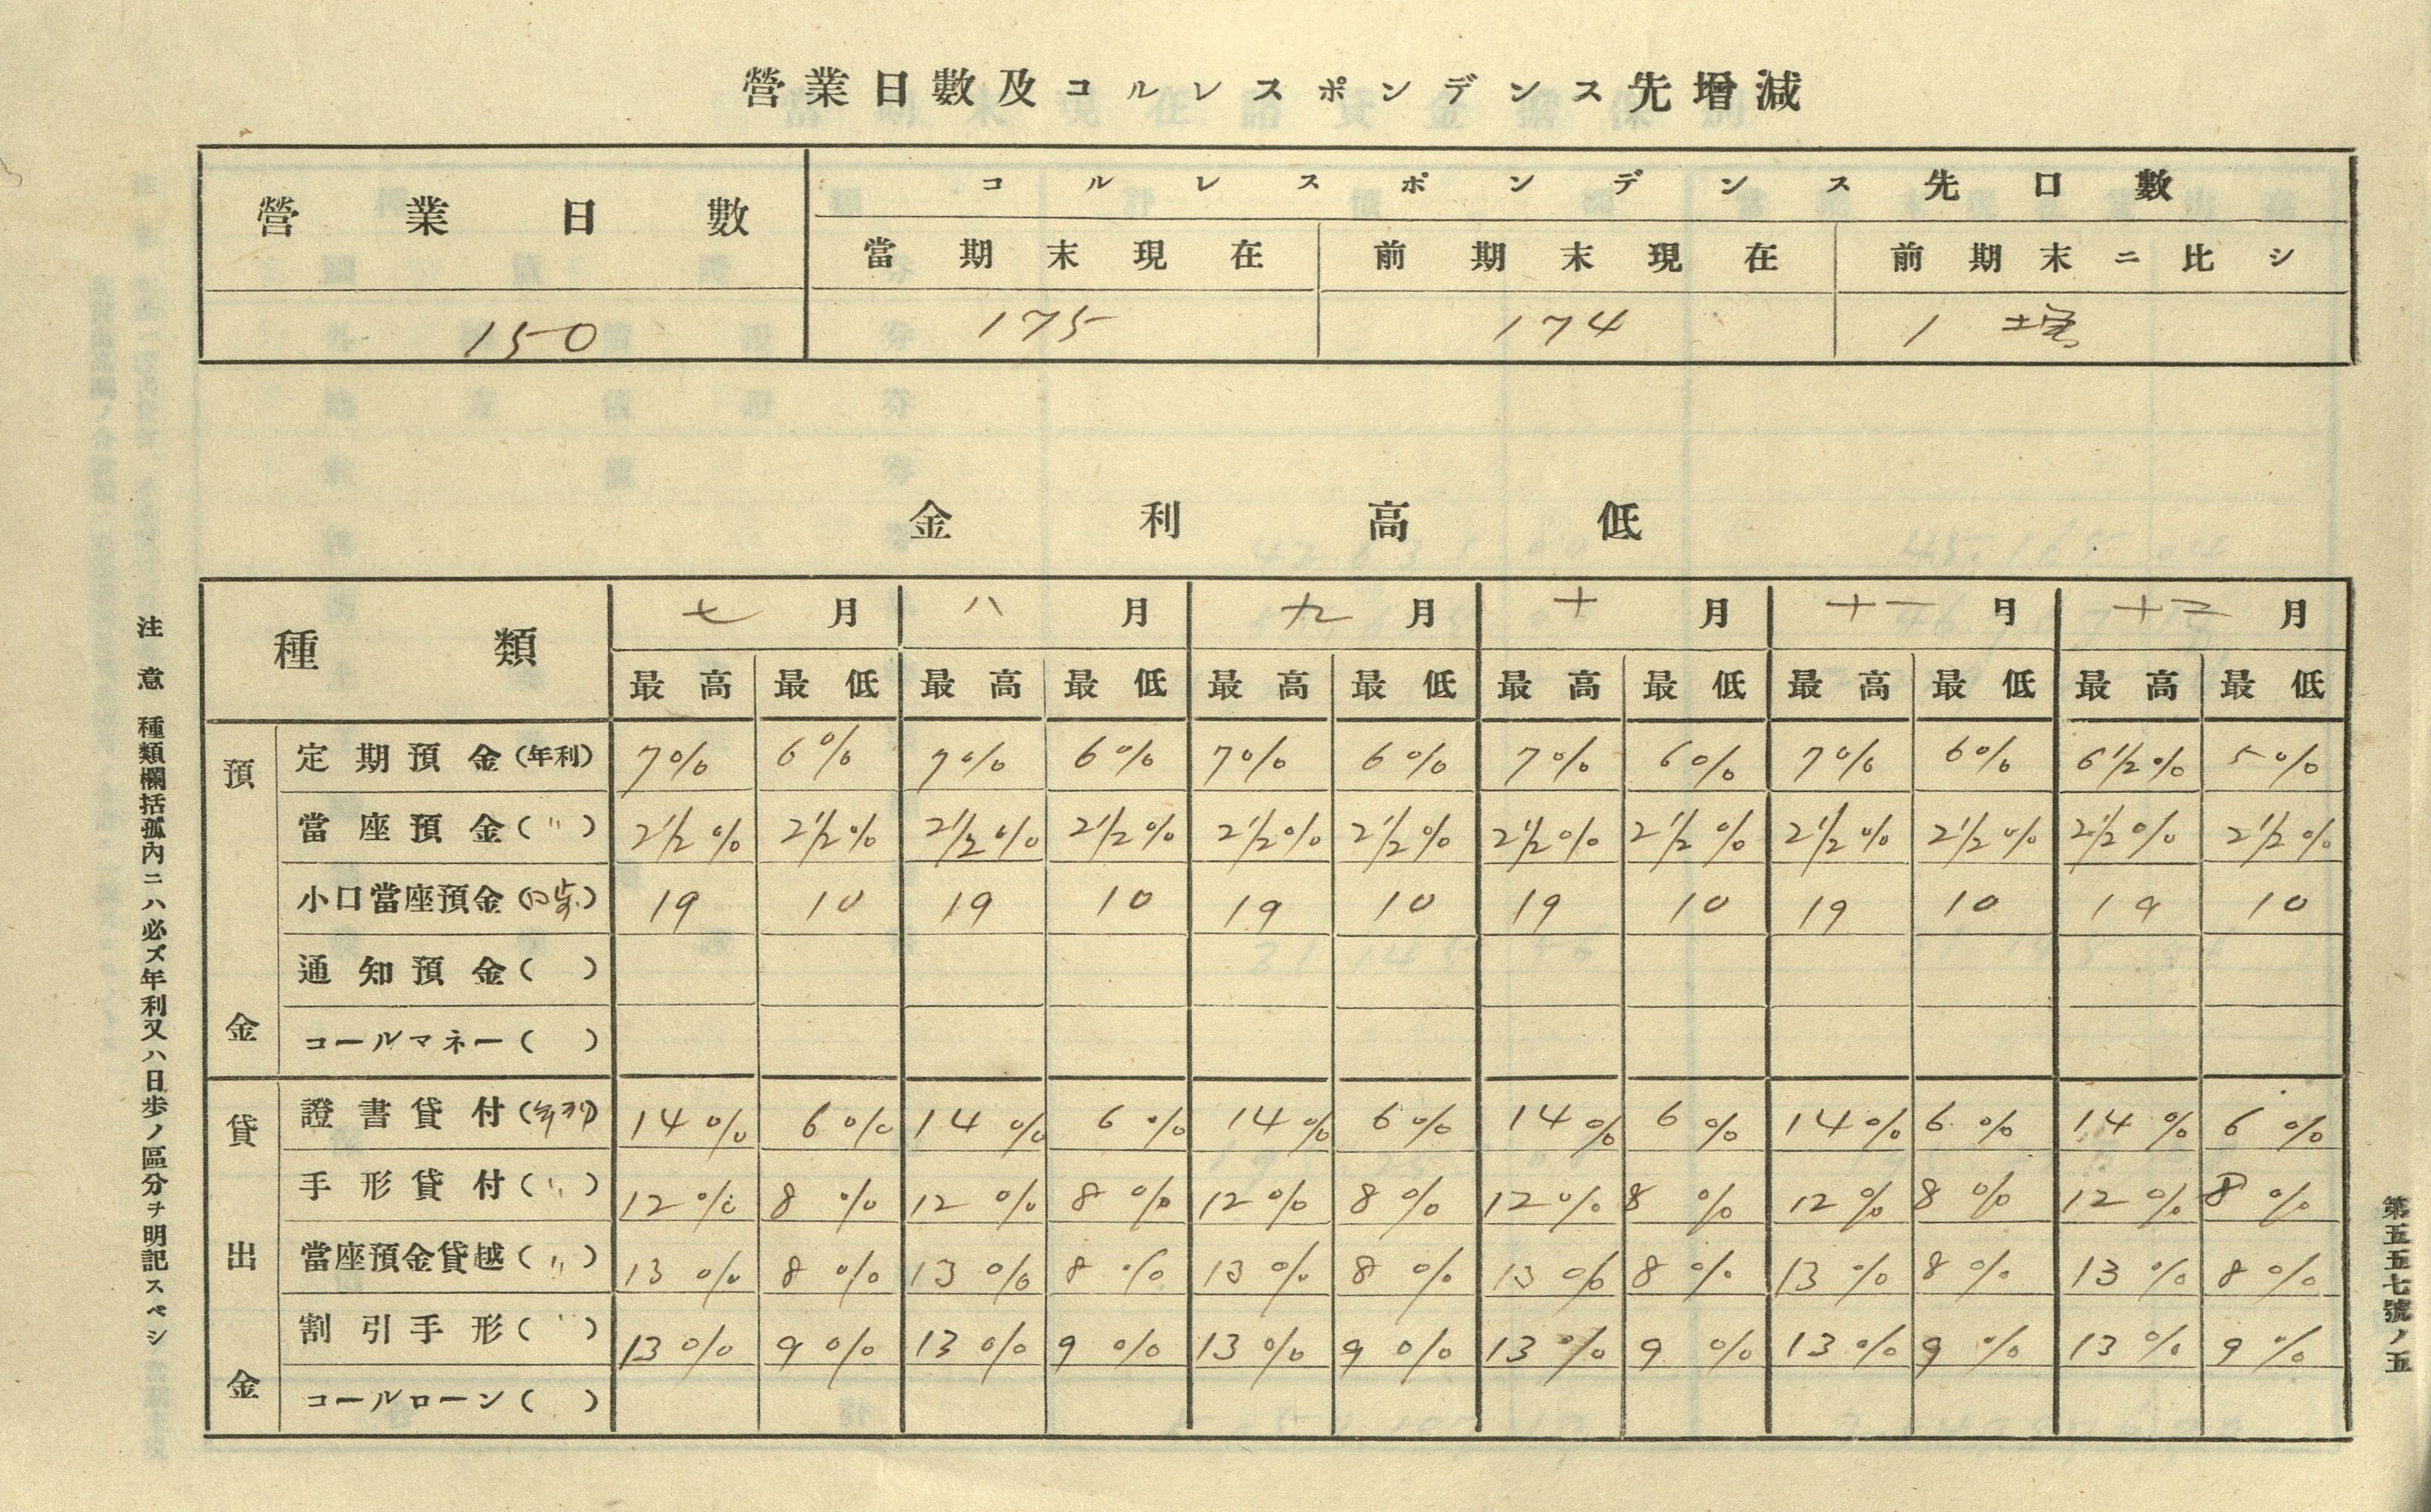 營業日數及コルレスポンデンス先增減
營業日數 コルレスポンデンス先口數
當期末現在 前期末現在 前期末ニ比シ
150 175 174 1 増
金利高低
種類 七月 八月 九月 十月 十一月 十二月
最高 最低 最高 最低 最高 最低 最高 最低 最高 最低 最高 最低
預金
定期預金(年利) 7% 6% 7% 6% 7% 6% 7% 6% 7% 6% 6½% 5%
當座預金(〃) 2½% 2½% 2½% 2½% 2½% 2½% 2½% 2½% 2½% 2½% 2½% 2½%
小口當座預金(日歩) 19 10 19 10 19 10 19 10 19 10 19 10
通知預金( )
コールマネー( )
貸出金
證書貸付(年利) 14% 6% 14% 6% 14% 6% 14% 6% 14% 6% 14% 6%
手形貸付(〃) 12% 8% 12% 8% 12% 8% 12% 8% 12% 8% 12% 8%
當座預金貸越(〃) 13% 8% 13% 8% 13% 8% 13% 8% 13% 8% 13% 8%
割引手形(〃) 13% 9% 13% 9% 13% 9% 13% 9% 13% 9% 13% 9%
コールローン( )
注意 種類欄括孤內ニハ必ズ年利又ハ日歩ノ區分ヲ明記スベシ
第五五七號ノ五